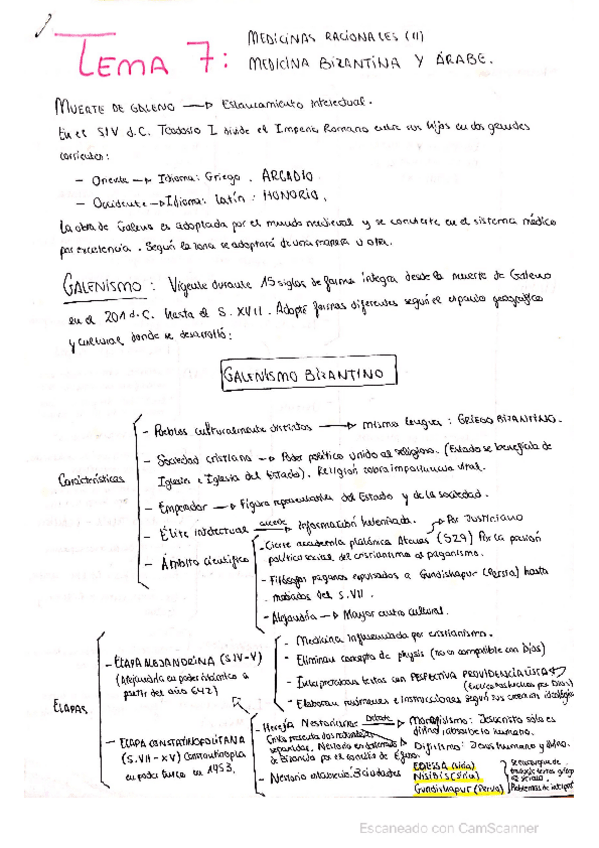 TEMA 7: MEDICINAS RACIONALES (II)
MEDICINA BIZANTINA Y ÁRABE.
MUERTE DE GALENO → Estancamiento intelectual.
En el SIV d.C. Teodosio I divide el Imperio Romano entre sus hijos en dos grandes
territorios:
- Oriente → Idioma: Griego. ARCADIO
- Occidente → Idioma: Latín: HONORIO.
La obra de Galeno es adoptada por el mundo medieval y se convierte en el sistema médico
por excelencia. Según la zona se adoptará de una manera u otra.
GALENISMO: Vigente durante 15 siglos de forma íntegra desde la muerte de Galeno
en el 201 d.C. hasta el S. XVII. Adopta formas diferentes según el espacio geográfico
y cultural donde se desarrolló:
GALENISMO BIZANTINO
Características
- Pueblos culturalmente distintos → mismo lengua: GRIEGO BIZANTINO.
- Sociedad cristiana → Poder político unido al religioso. (Estado se beneficia de
Iglesia e Iglesia del Estado). Religión cobra importancia vital.
- Emperador → Figura representativa del Estado y de la sociedad.
- Élite intelectual accede → Información helenizada.
- Ámbito científico
- Cierre academia platónica Atenas (529) Por la presión
político social del cristianismo al paganismo.
→ Por Justiniano
- Filósofos paganos expulsados a Gundishapur (Persia) hasta
mediados del S. VII.
- Alejandría → Mayor centro cultural.
Etapas
- ETAPA ALEJANDRINA (SIV-V)
(Alejandría en poder islámico a
partir del año 642)
- Medicina influenciada por cristianismo.
- Eliminan concepto de physis (no es compatible con Dios)
- Interpretaban textos con PERSPECTIVA PROVIDENCIALISTA
- Elaboran resúmenes e instrucciones según sus creencias ideológicas
- ETAPA CONSTATINOPOLITANA
(S. VII - XV) Constantinopla
en poder turco en 1953.
- Herejía Nestoriana Debate → Monofisismo: Jesucristo sólo es
divino
→ Difisismo: Jesús humano y divino.
- Nestorio establece 3 ciudades
EDESSA (Siria)
NISIBIS (Siria)
Gundishapur (Persia)
Escaneado con CamScanner